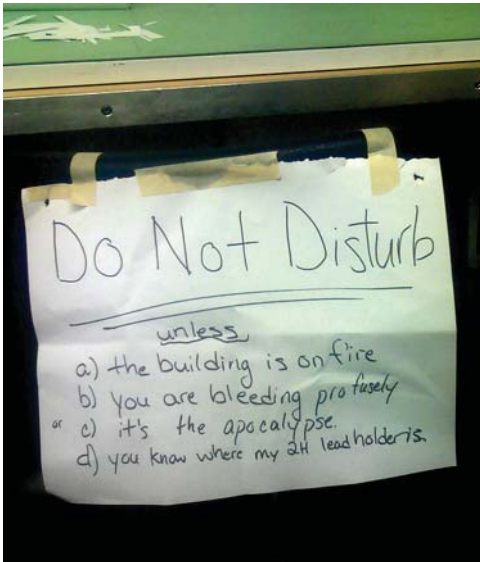 Do Not Disturb
unless
a) the building is on fire
b) you are bleeding profusely
or c) it's the apocalypse.
d) you know where my 2H lead holder is.